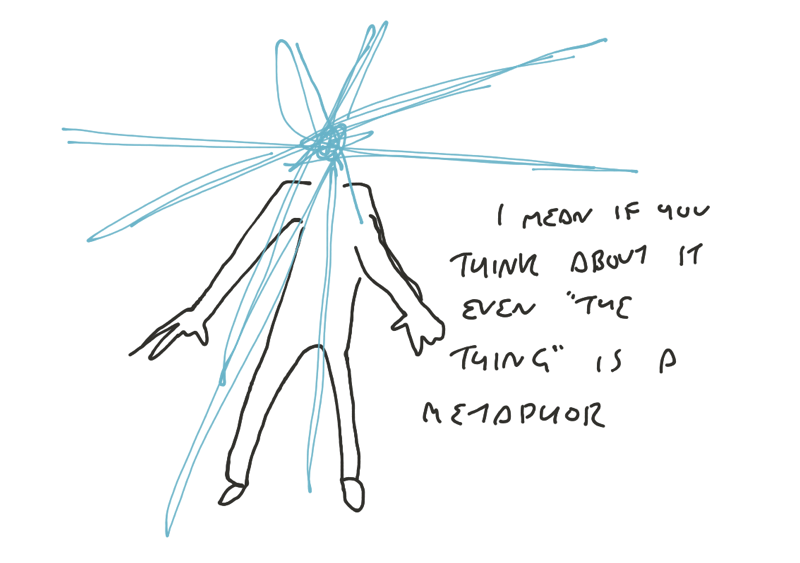 I MEAN IF YOU
THINK ABOUT IT
EVEN "THE
THING" IS A
METAPHOR